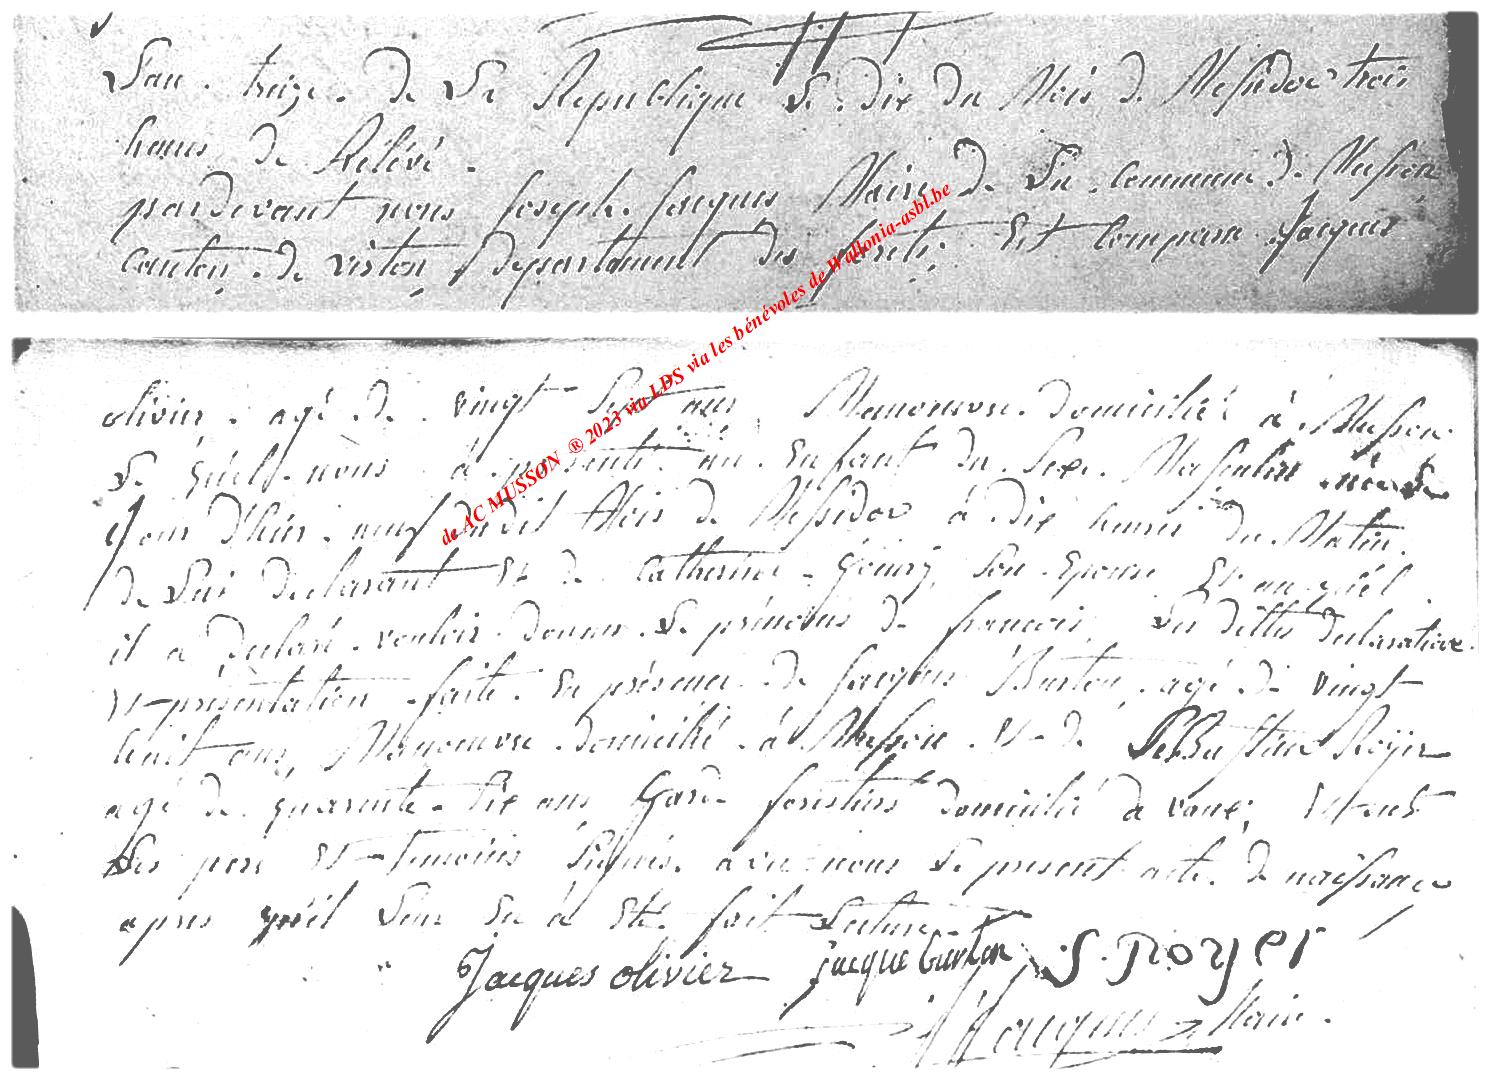 L'an treize de la Republique le dix du Mois de Messidor trois
heures de Rélévé.
pardevant nous Joseph Jacques Maire de la commune de Musson
canton de virton departement des forêts Est comparu Jacques
olivier agé de vingt sept ans Manoeuvre domicilié à Musson
le quel nous à présenté un Enfant du Sexe Masculin né le
Jour d'hier neuf dudit Mois de Messidor à dix heures du Matin
de lui declarant Et de Catherine Goury son Epouse Et au quel
il a declaré vouloir donner le prénoms de francois, les dittes declaration
Et présentation faite En présence de Jacques Burton agé de vingt
huit ans, Manoeuvre domicilié à Musson Et de Sebastien Royer
agé de quarante Six ans Garde forestiers domicilié à vance, Et ont
les pere Et temoins Signés avec nous le present acte de naissance
apres qu'il leur En à Eté fait Lecture
Jacques olivier jacque burton S. Royer
J Jacques Maire.
de AC MUSSON ® 2023 via LDS via les bénévoles de Wallonia-asbl.be